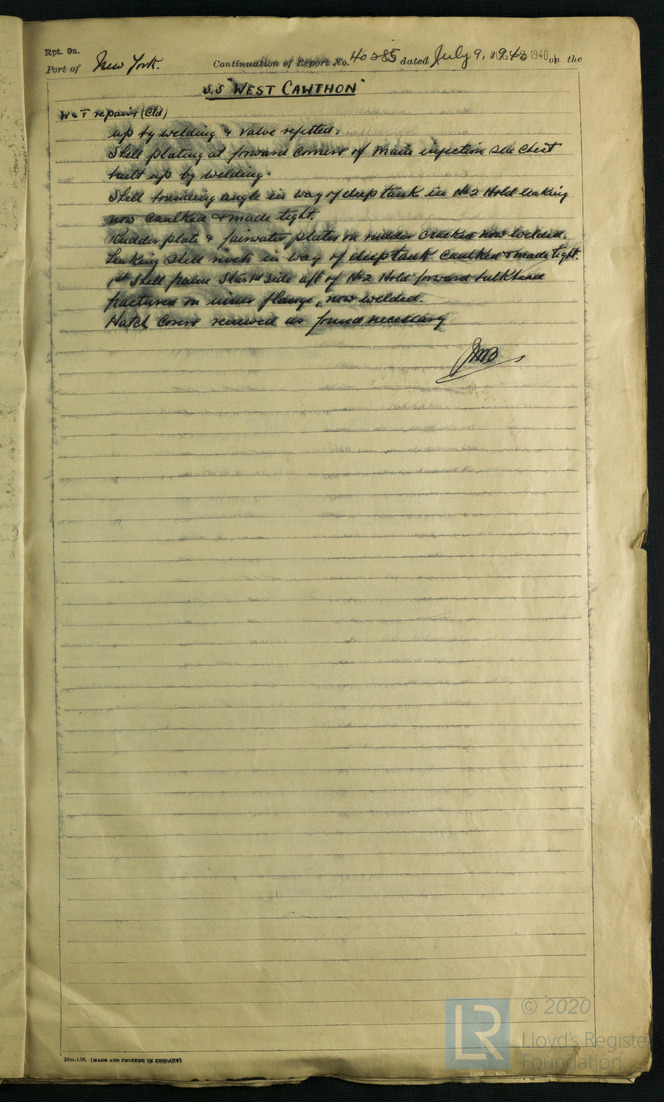 Rpt. 9a.
Port of New York. Continuation of Report No. 40285 dated July 9, 1940 on the
S.S "WEST CAWTHON"
W & T repairs (Ctd)
up by welding & valve refitted.
Shell plating at forward corners of main injection sea chest
built up by welding.
Shell bounding angle in way of deep tank in No 2 Hold leaking
now caulked & made tight.
Rudder plate & fairwater plates on rudder cracked now welded.
Leaking shell rivets in way of deep tank caulked & made tight.
1st Shell frame Starbd side aft of No 2 Hold forward bulkhead
fractured on inner flange, now welded.
Hatch Covers renewed as found necessary
JMB
(MADE AND PRINTED IN ENGLAND)
LR
© 2020
Lloyd's Register
Foundation